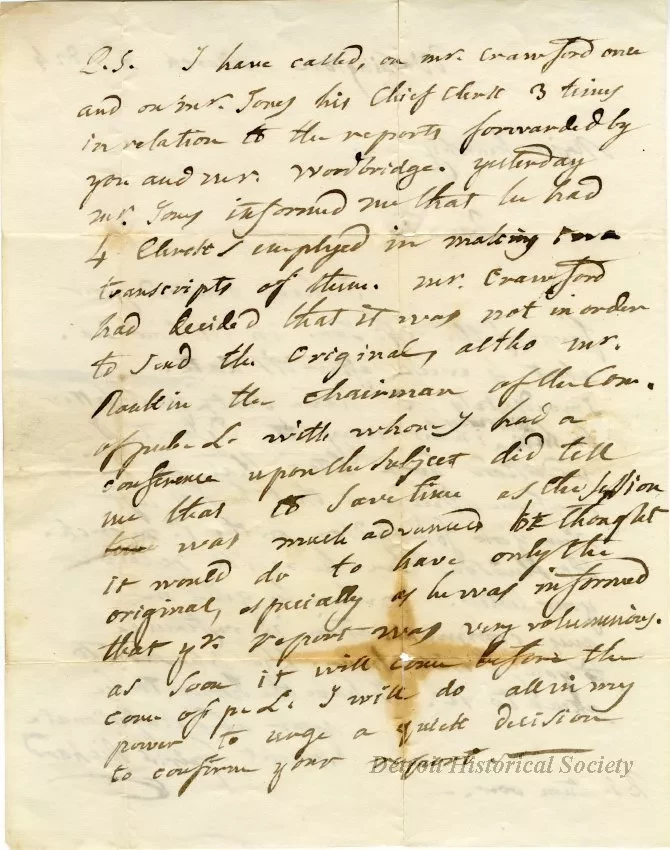 P.S. I have called, on mr. Crawford once
and on mr. Jones his Chief Clerk 3 times
in relation to the reports forwarded by
you and mr. Woodbridge. yesterday
mr. Jones informed me that he had
4 Clerks employed in making
transcripts of them. mr. Crawford
had decided that it was not in order
to send the original, altho mr.
the chairman of the Com.
of pub. L. with whom I had a
conference upon the subject did tell
me that to save time as the session
was much advanced he thought
it would do to have only the
original, especially as he was informed
that yr. report was very voluminous.
as soon it will come before the
com of p. L. I will do all in my
power to urge a quick decision
to confirm your report.
Detroit Historical Society